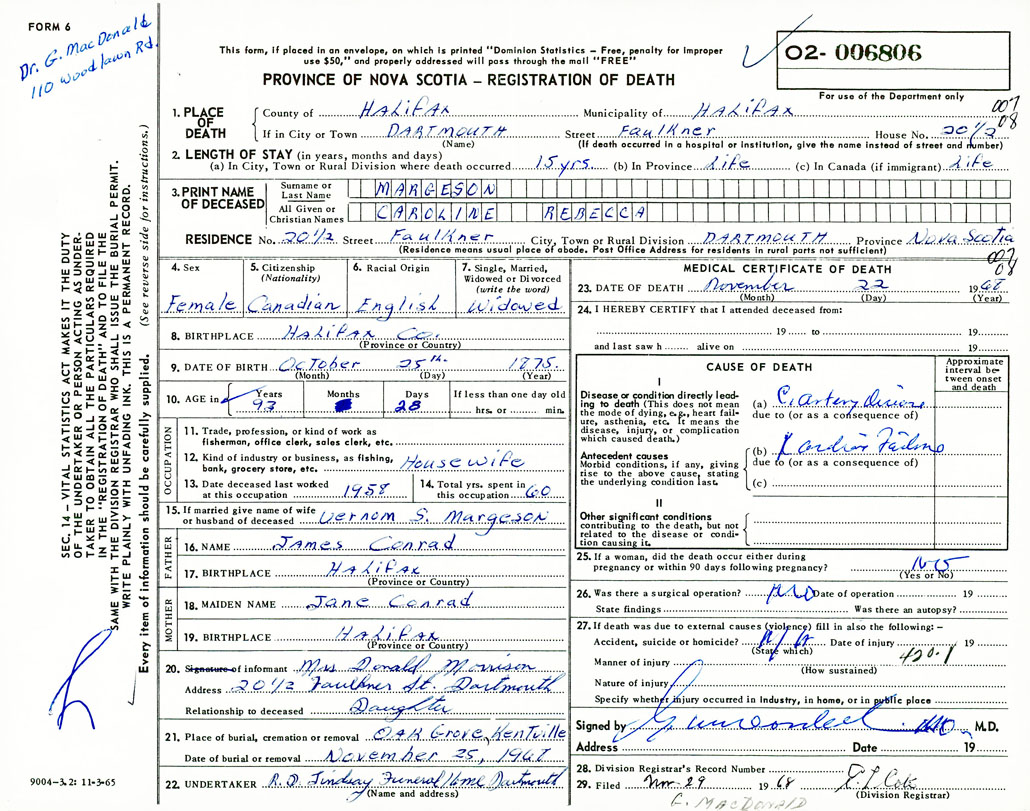 FORM 6
Dr. G. MacDonald
110 Woodlawn Rd.
This form, if placed in an envelope, on which is printed "Dominion Statistics – Free, penalty for improper
use $50," and properly addressed will pass through the mail "FREE"
PROVINCE OF NOVA SCOTIA – REGISTRATION OF DEATH
O2- 006806
For use of the Department only
007
08
1. PLACE OF DEATH
County of HALIFAX Municipality of HALIFAX
If in City or Town DARTMOUTH Street Faulkner House No. 20 1/2
(Name) (If death occurred in a hospital or institution, give the name instead of street and number)
2. LENGTH OF STAY (in years, months and days)
(a) In City, Town or Rural Division where death occurred 15 yrs. (b) In Province Life (c) In Canada (if immigrant) Life
3. PRINT NAME OF DECEASED
Surname or Last Name MARGESON
All Given or Christian Names CAROLINE REBECCA
RESIDENCE No. 20 1/2 Street Faulkner City, Town or Rural Division DARTMOUTH Province Nova Scotia
(Residence means usual place of abode. Post Office Address for residents in rural parts not sufficient)
007
08
4. Sex
Female
5. Citizenship
(Nationality)
Canadian
6. Racial Origin
English
7. Single, Married,
Widowed or Divorced
(write the word)
Widowed
8. BIRTHPLACE HALIFAX Co.
(Province or Country)
9. DATE OF BIRTH October 25th. 1875.
(Month) (Day) (Year)
10. AGE in Years Months Days If less than one day old
93 28 hrs. or min.
OCCUPATION
11. Trade, profession, or kind of work as
fisherman, office clerk, sales clerk, etc.
12. Kind of industry or business, as fishing,
bank, grocery store, etc. Housewife
13. Date deceased last worked
at this occupation 1958
14. Total yrs. spent in
this occupation 60
15. If married give name of wife
or husband of deceased Vernom S. Margeson
FATHER
16. NAME James Conrad
17. BIRTHPLACE HALIFAX
(Province or Country)
MOTHER
18. MAIDEN NAME Jane Conrad
19. BIRTHPLACE HALIFAX
(Province or Country)
20. Signature of informant Mrs Donald Morrison
Address 20 1/2 Faulkner St. Dartmouth
Relationship to deceased Daughter
21. Place of burial, cremation or removal OAK Grove, Kentville
Date of burial or removal November 25, 1968
22. UNDERTAKER R.D. Lindsay Funeral Home Dartmouth
(Name and address)
MEDICAL CERTIFICATE OF DEATH
23. DATE OF DEATH November 22 1968
(Month) (Day) (Year)
24. I HEREBY CERTIFY that I attended deceased from:
19 to 19
and last saw h alive on 19
CAUSE OF DEATH
Approximate
interval be-
tween onset
and death
I
Disease or condition directly lead-
ing to death (This does not mean
the mode of dying, e.g., heart fail-
ure, asthenia, etc. It means the
disease, injury, or complication
which caused death.)
(a) C. artery disease
due to (or as a consequence of)
Antecedent causes
Morbid conditions, if any, giving
rise to the above cause, stating
the underlying condition last.
(b) Cardiac Failure
due to (or as a consequence of)
(c)
II
Other significant conditions
contributing to the death, but not
related to the disease or condi-
tion causing it.
25. If a woman, did the death occur either during
pregnancy or within 90 days following pregnancy? No
(Yes or No)
26. Was there a surgical operation? No Date of operation 19
State findings Was there an autopsy?
27. If death was due to external causes (violence) fill in also the following: –
Accident, suicide or homicide? N/A Date of injury 19
(State which)
420.1
Manner of injury
(How sustained)
Nature of injury
Specify whether injury occurred in Industry, in home, or in public place
Signed by M.D.
Address Date 19
28. Division Registrar's Record Number
29. Filed Nov. 29 1968
(Division Registrar)
G. MACDONALD
SEC. 14 – VITAL STATISTICS ACT MAKES IT THE DUTY
OF THE UNDERTAKER OR PERSON ACTING AS UNDER-
TAKER TO OBTAIN ALL THE PARTICULARS REQUIRED
IN THE "REGISTRATION OF DEATH" AND TO FILE THE
SAME WITH THE DIVISION REGISTRAR WHO SHALL ISSUE THE BURIAL PERMIT.
WRITE PLAINLY WITH UNFADING INK. THIS IS A PERMANENT RECORD.
Every item of information should be carefully supplied. (See reverse side for instructions.)
9004–3.2: 11-3-65